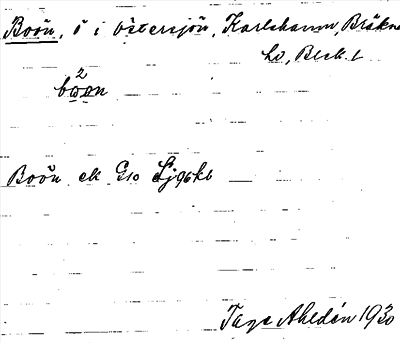 Boön, ö i Östersjön, Karlshamn, Bräkne
hd, Blek. l
2
boon
Boön ek G10 Sjökb
Tage Ahldén 1930